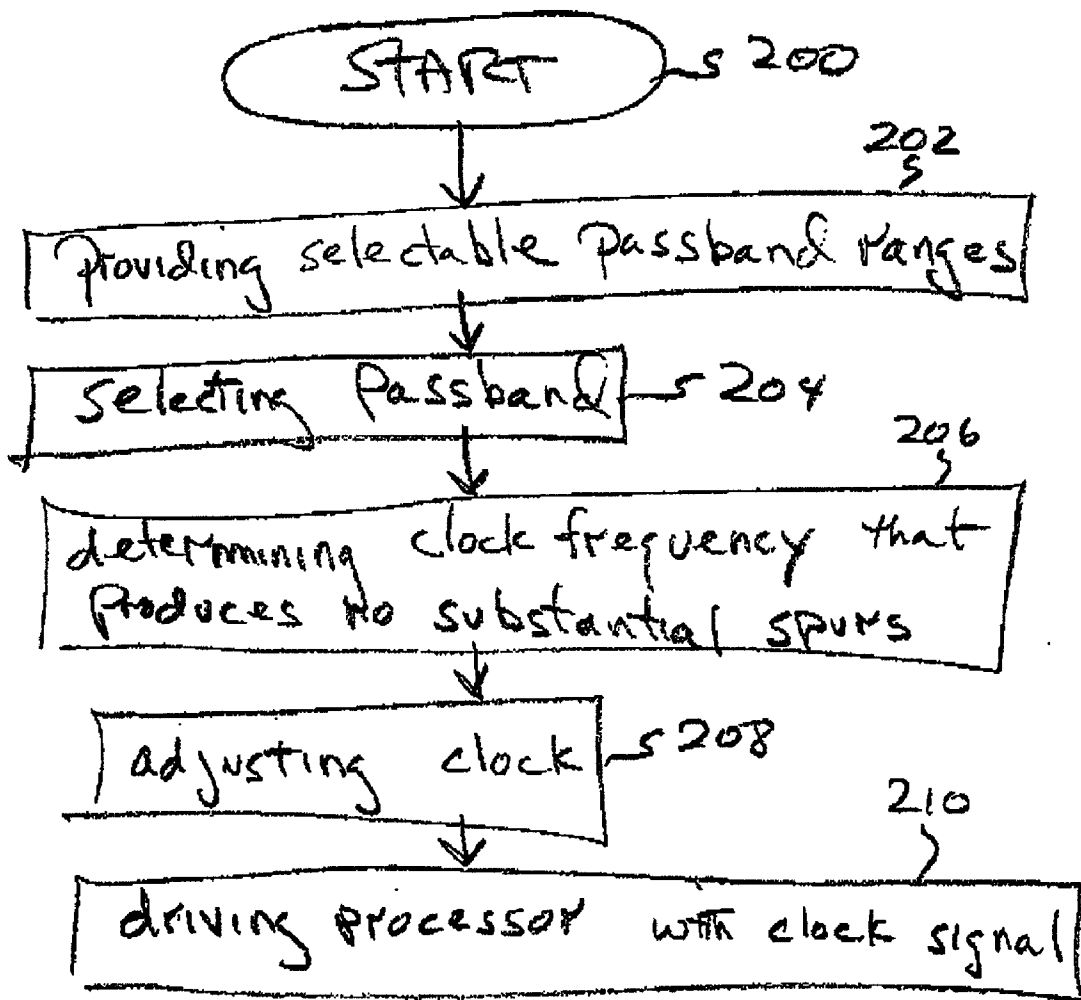 START 200
202
Providing selectable Passband ranges
selecting Passband 204
206
determining clock frequency that
Produces no substantial spurs
adjusting clock 208
210
driving processor with clock signal